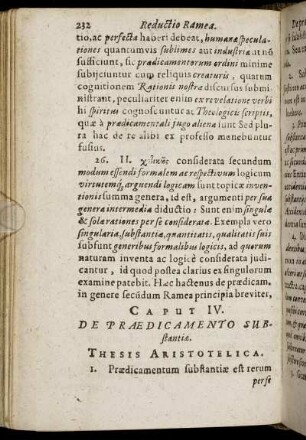 232 Reductio Ramea.
tio, ac perfecta haberi debeat, humanæ specula-
tiones quantumvis sublimes aut industriæ ut nõ
sufficiunt, sic prædicamentorum ordini minime
subijciuntur cum reliquis creaturis, quarum
cognitionem Rationis nostræ discursus submi-
nistrant, peculiariter enim ex revelatione verbi
hi spiritus cognoscuntur ac Theologicis scriptis,
quæ à prædicamentali jugo aliena sunt Sed plu
ra hac de re alibi ex professo monebuntur
fusius.
26. II. considerata secundum
modum essendi formalem ac respectivum logicum
virtutemq́; arguendi logicam sunt topicæ inven-
tionis summa genera, id est, argumenti per sua
genera intermedia diductio: Sunt enim singulæ
& solæ rationes per se consideratæ. Exempla vero
singularia, substantiæ, quantitatis, qualitatis suis
subsunt generibus formalibus logicis, ad quorum
naturam inventa ac logicè considerata judi-
cantur, id quod postea clarius ex singulorum
examine patebit. Hæc hactenus de prædicam.
in genere secũdum Ramea principia breviter,
CAPUT IV.
DE PRÆDICAMENTO SUB-
stantiæ.
THESIS ARISTOTELICA.
1. Prædicamentum substantiæ est rerum
per se